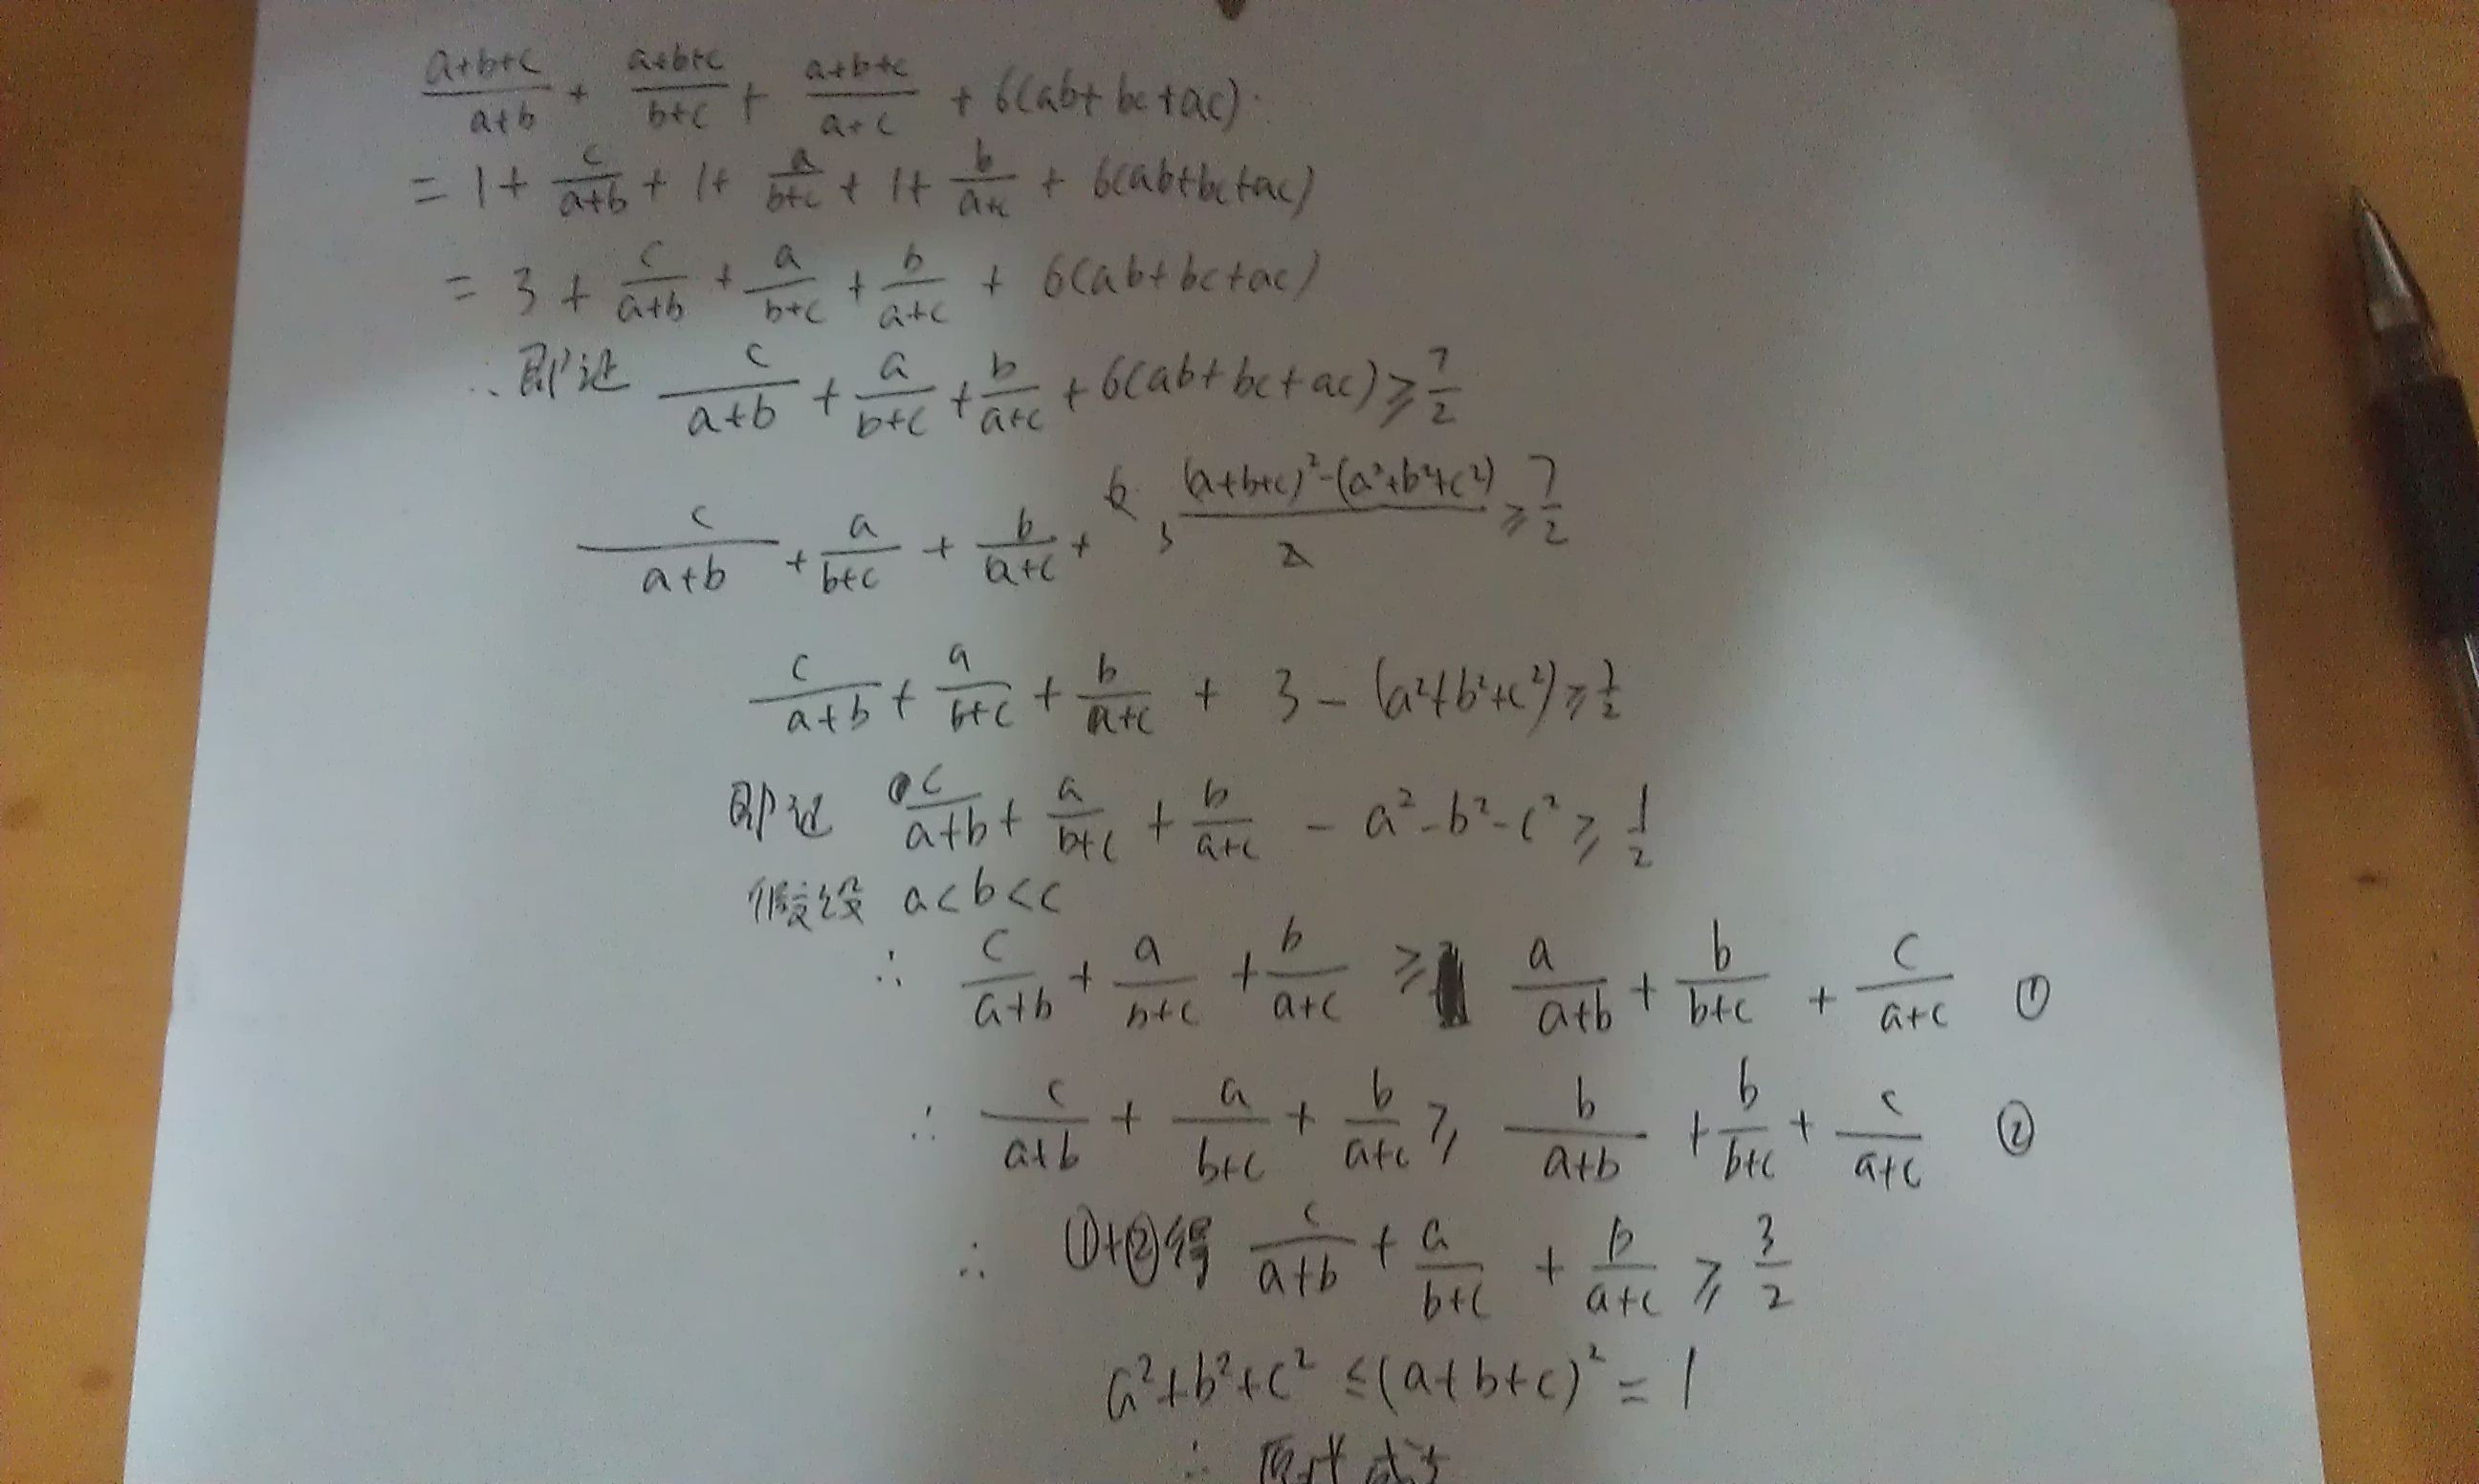 (a+b+c)/(a+b) + (a+b+c)/(b+c) + (a+b+c)/(a+c) + 6(ab+bc+ac).
= 1+ c/(a+b) + 1+ a/(b+c) + 1+ b/(a+c) + 6(ab+bc+ac)
= 3 + c/(a+b) + a/(b+c) + b/(a+c) + 6(ab+bc+ac)
∴ 即证 c/(a+b) + a/(b+c) + b/(a+c) + 6(ab+bc+ac) ≥ 7/2
c/(a+b) + a/(b+c) + b/(a+c) + 6. ((a+b+c)²-(a²+b²+c²))/2 ≥ 7/2
c/(a+b) + a/(b+c) + b/(a+c) + 3 - (a²+b²+c²) ≥ 7/2
即证 c/(a+b) + a/(b+c) + b/(a+c) - a²-b²-c² ≥ 1/2
假设 a<b<c
∴ c/(a+b) + a/(b+c) + b/(a+c) ≥ a/(a+b) + b/(b+c) + c/(a+c) ①
∴ c/(a+b) + a/(b+c) + b/(a+c) ≥ b/(a+b) + b/(b+c) + c/(a+c) ②
∴ ①+②得 c/(a+b) + a/(b+c) + b/(a+c) ≥ 3/2
a²+b²+c² ≤ (a+b+c)² = 1
∴ 原式成立